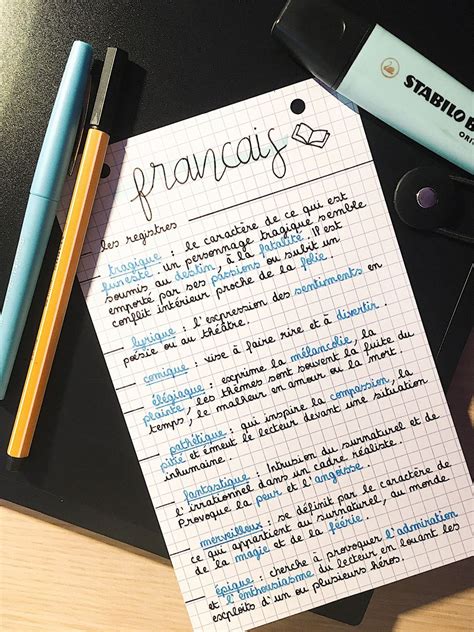 STABILO B
ORI
francais
les registres
tragique : le caractère de ce qui est
funeste. un personnage tragique semble
soumis, au destin, à la fatalité. Il est
emporté par ses passions ou subit un
conflit intérieur proche de la folie.
lyrique : l'expression des sentiments en
poésie ou au théâtre.
comique : vise à faire rire et à divertir.
élégiaque : exprime la mélancolie, la
plainte, les thèmes sont souvent la fuite du
temps, le malheur en amour ou la mort.
pathétique : qui inspire la compassion, la
pitié et émeut le lecteur devant une situation
inhumaine.
fantastique : Intrusion du surnaturel et de
l'irrationnel dans un cadre réaliste.
Provoque la peur et l'angoisse.
merveilleux : se définit par le caractère de
ce qui appartient au surnaturel, au monde
de la magie et de la féérie.
épique : cherche à provoquer l'admiration
et l'enthousiasme du lecteur en louant les
exploits d'un ou plusieurs héros.